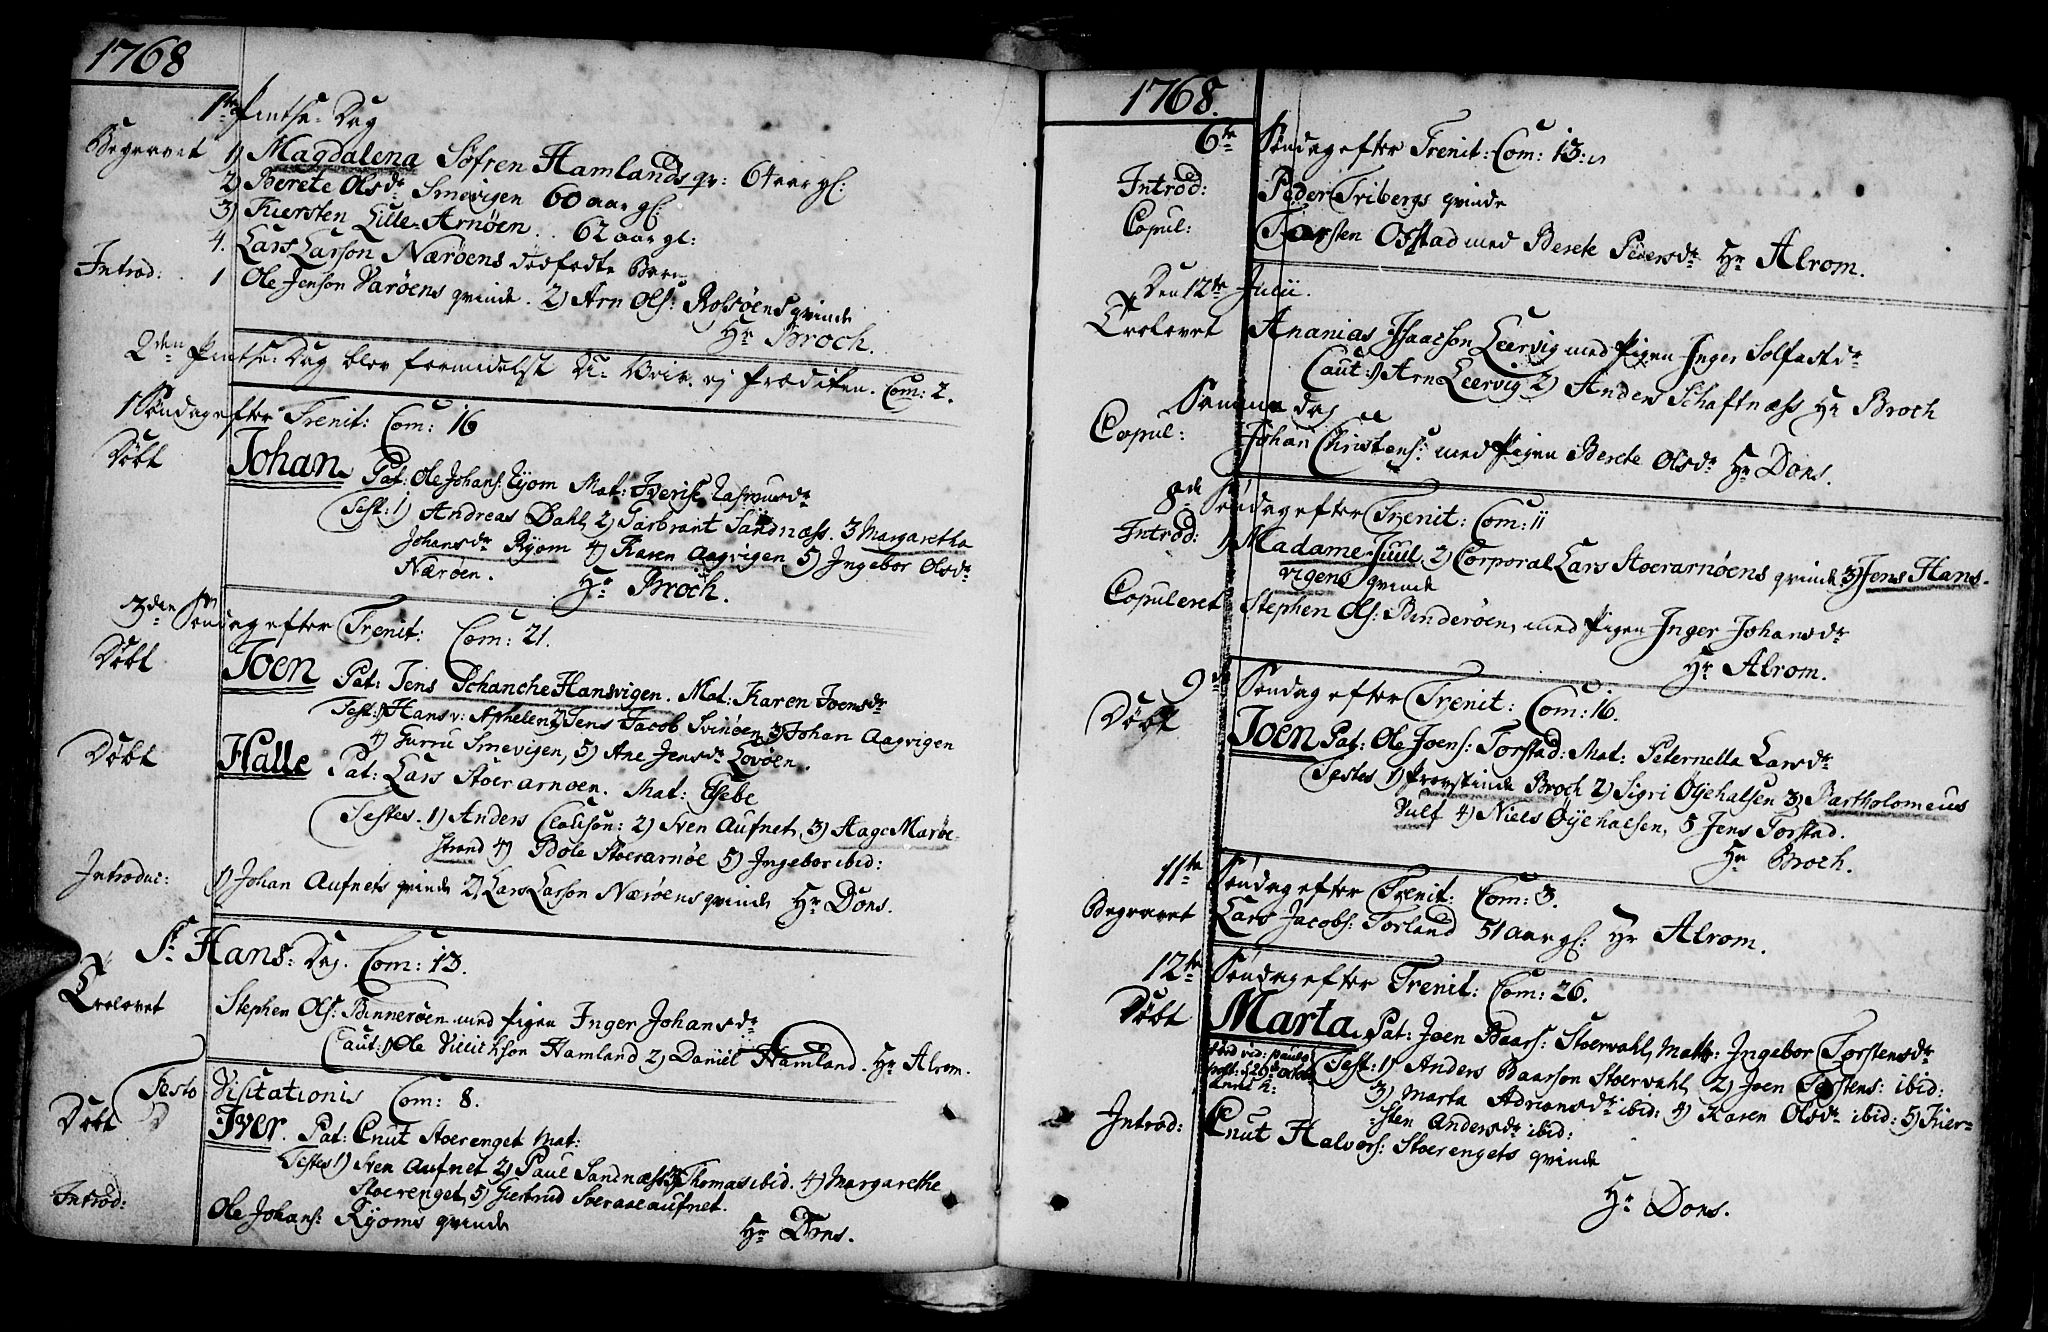 1768
1ste Pintse-Dag
Begravet 1) Magdalena Søfren Hamlands qv: 64 aar gl:
2) Berete Olsdr Smevigen 60 aar gl:
3) Kiersten Lille-Arnøen. 62 aar gl:
4. Lars Larson Nærøens dødfødte Barn
Introd: 1 Ole Jenson Varøens qvinde. 2) Arn Ols: Rossøens qvinde
Hr Broch.
2den Pintse-Dag blev formedelst U-Veir ej Prædiken. Com: 2.
1 Søndag efter Trenit: Com: 16
Døbt Johan. Pat: Ole Johans: Ryom Mat: Iverise Rasmusdr
Test: 1) Andreas Dahl, 2) Garbrant Sandnæss. 3 Margaretha
Johansdr Ryom 4) Karen Aagvigen 5) Ingebor Olsdr
Nærøen. Hr Broch.
3den Søndag efter Trenit: Com: 21.
Døbt Joen Pat: Jens Schanche Hansvigen. Mat: Karen Joensdr
Test: 1) Hans v: Aphelen 2) Jens Jacob Svinøen 3 Johan Aagvigen
4) Gurru Smevigen, 5) Ane Jensdr Lovøen.
Døbt Halle Pat: Lars Stoerarnoen. Mat: Esebe
Testes. 1) Anders Clauson: 2) Sven Aufnet, 3) Aage Marøe-
strand 4) Bole Stoerarnøe 5) Ingebor ibid:
Introduc: 1) Johan Aufnets qvinde 2) Lars Larson Nærøens qvinde Hr Dons.
St Hans: Dag. Com: 13.
Trolovet Stephen Ols: Binnerøen med Pigen Inger Johansdr
Caut: 1) Ole Hamland 2) Daniel Hamland. Hr Alrom.
Festo Visitationis Com: 8.
Døbt Iver. Pat: Cnut Stoerenget Mat:
Testes 1) Sven Aufnet 2) Paul Sandnæss 3) Thomas ibid. 4) Margarethe
Stoerenget, 5) Giertrud Soeraaeaufnet.
Introd: Ole Johans: Ryoms qvinde Hr Dons.
1768.
6te Søndag efter Trenit: Com: 13:
Introd: Peder Tribergs qvinde
Copul: Torsten Ofstad med Berete Pedersdr Hr Alrom.
Den 12te Julii.
Trolovet Ananias Isaacson Leervig med Pigen Inger Solfastdr
Caut: 1) Arn Leervig 2) Anders Schaftnæss Hr Broch
Samme dag
Copul: Johan Christens: med Pigen Berete Olsdr Hr Dons.
8de Søndag efter Trenit: Com: 11
Introd: 1) Madame Juul, 2) Corporal Lars Stoerarnøens qvinde 3) Jens Hans-
vigens qvinde
Copuleret Stephen Ols: Binderøen, med Pigen Inger Johansdr
Hr Alrom.
9de Søndag efter Trenit: Com: 16.
Døbt Joen Pat: Ole Joens: Torstad: Mat: Peternella Larsdr
Testes 1) Provstinde Broch 2) Sigri Øyehalsen 3) Bartholomeus
Vulf 4) Niels Øyehalsen, 5 Jens Torstad.
Hr Broch.
11te Søndag efter Trenit: Com: 3.
Begravet Lars Jacobs: Torland 51 aar gl: Hr Alrom.
12te Søndag efter Trenit: Com: 26.
Døbt Marta. Pat: Joen Baars: Stoervahl, Matr: Ingebor Torstensdr
Test: 1) Anders Baarson Stoervahl, 2) Joen Torstens: ibid:
3) Marta Adriansdr ibid: 4) Karen Olsdr ibid: 5) Kier-
sten Andersdr ibid:
Introd: Cnut Halvors: Stoerengets qvinde
Hr Dons.